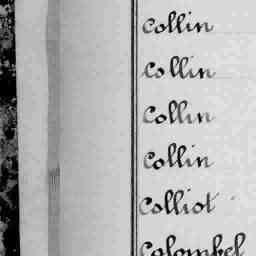 Collin
Collin
Collin
Collin
Colliot
Colombel